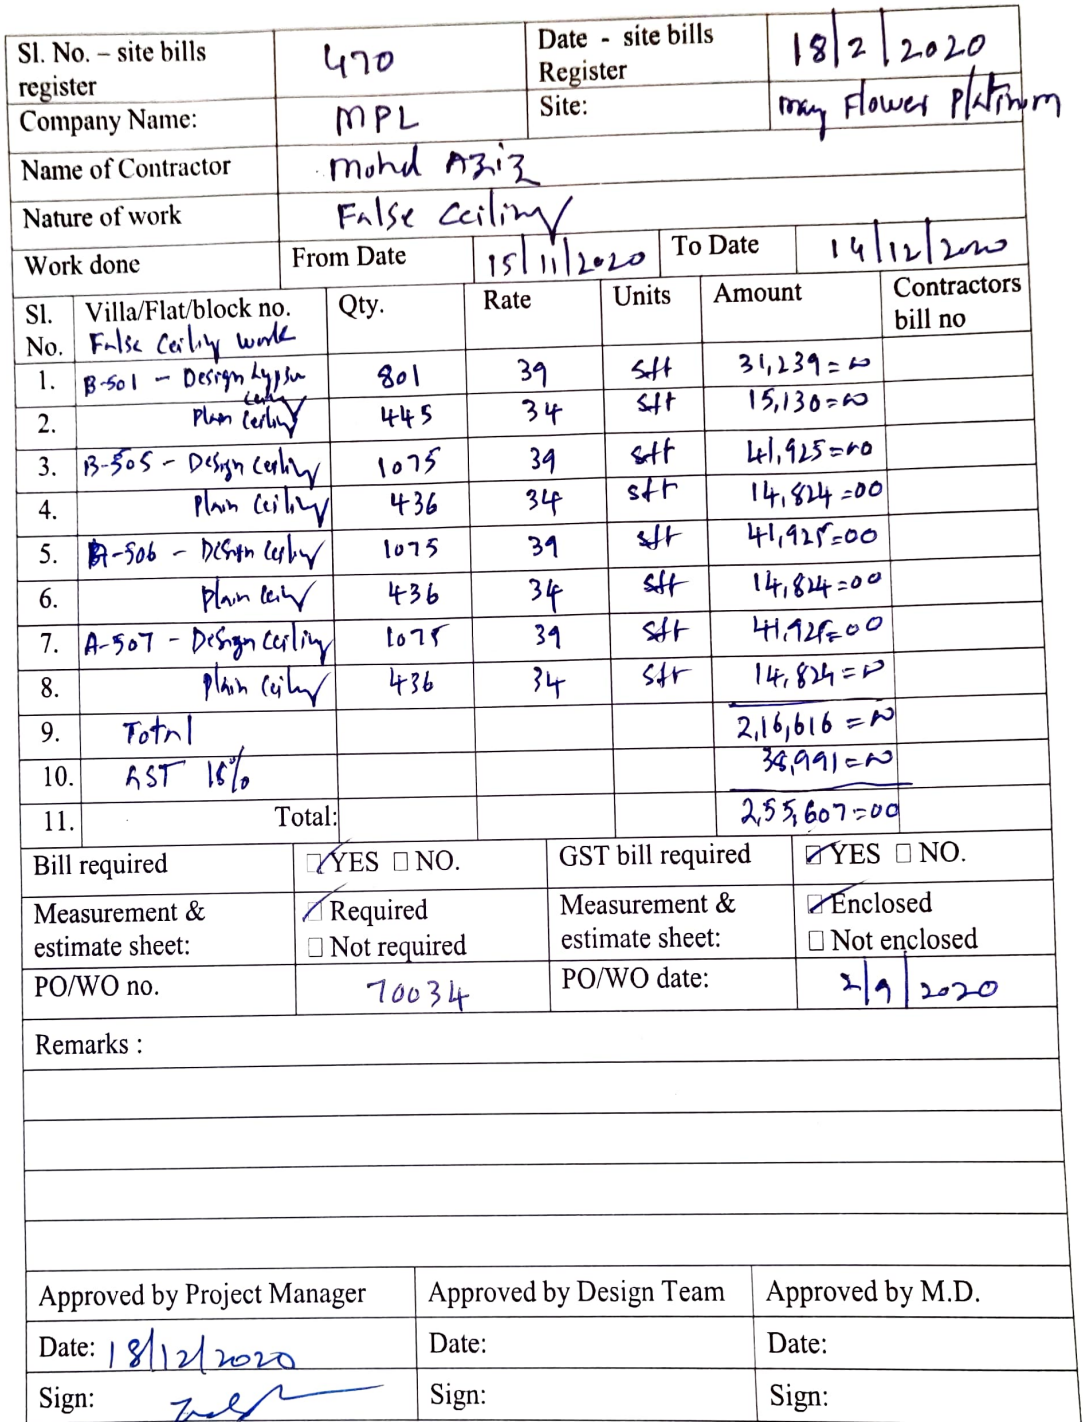 Sl. No. – site bills register 470 Date - site bills Register 18/2/2020
Company Name: MPL Site: may Flower Platinum
Name of Contractor Mohd Aziz
Nature of work False Ceiling
Work done From Date 15/11/2020 To Date 14/12/2020
Sl. No. Villa/Flat/block no. Qty. Rate Units Amount Contractors bill no
False Ceiling work
1. B-501 - Design Gypsu Ceiling 801 39 sft 31,239=00
2. Plain Ceiling 445 34 sft 15,130=00
3. B-505 - Design Ceiling 1075 39 sft 41,925=00
4. Plain Ceiling 436 34 sft 14,824=00
5. A-506 - Design Ceiling 1075 39 sft 41,925=00
6. Plain Ceiling 436 34 sft 14,824=00
7. A-507 - Design Ceiling 1075 39 sft 41,925=00
8. Plain Ceiling 436 34 sft 14,824=00
9. Total 2,16,616=00
10. GST 18% 38,991=00
11. Total: 2,55,607=00
Bill required YES NO. GST bill required YES NO.
Measurement & estimate sheet: Required Measurement & estimate sheet: Enclosed
Not required Not enclosed
PO/WO no. 70034 PO/WO date: 2/9/2020
Remarks :
Approved by Project Manager Approved by Design Team Approved by M.D.
Date: 18/12/2020 Date: Date:
Sign: Sign: Sign: